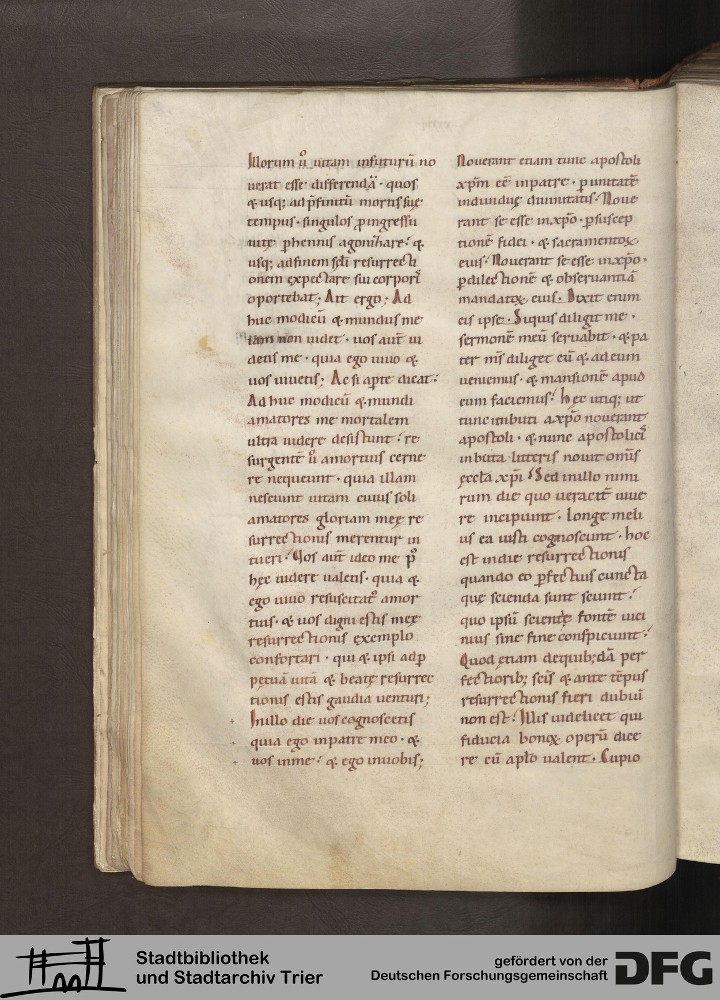 Illorum ů uitam infuturū no
uerat esse differendā· quos
& usq; ad p̄finitū mortis suę
tempus· singulos ꝓingressū
uitę ꝑhennis agonizare? &
usq; adfinem sc̄li resurrecti
onem expectare sui corporis
oportebat; Ait ergo; Ad
huc modicū & mundus me
iam non uidet· uos aut̄ ui
detis me· quia ego uiuo &
uos uiuetis; Ac si aꝑte dicat:
Ad huc modicū & mundi
amatores me mortalem
ultra uidere desistunt? re
surgentē ů amortuis cerne
re nequeunt· quia illam
nesciunt uitam cuius soli
amatores gloriam meę re
surrectionis merentur in
tueri? Vos aut̄ ideo me p̊
hęc uidere ualetis· quia &
ego uiuo resuscitatꝰ amor
tuis· & uos digni estis meę
resurrectionis exemplo
confortari· qui & ipsi adꝑ
pętuā uitā & beatę resurrec
tionis estis gaudia uenturi;
Inillo die uos cognoscetis
quia ego inpatre meo· &
uos inme? & ego inuobis;
Nouerant etiam tunc apostoli
xp̄m eē inpatre· ꝑ unitatē
indiuiduę diuinitatis? Noue
rant se esse in xp̄o· ꝑsuscep
tionē fidei· & sacramentoꝝ
eius? Nouerant se esse in xp̄o·
ꝑ dilectionē & obseruantiā
mandatoꝝ eius. Dixit enim
eis ipse· Siquis diligit me·
sermonē meū seruabit· & pa
ter ms̄ diliget eū & ad eum
ueniemus· & mansionē apud
eum faciemus? Hęc utiq; ut
tunc inbuti a xp̄o nouerant
apostoli· & nunc apostolicis
inbuta litteris nouit om̄is
ęccl̄a xp̄i? Sed inillo nimi
rum die quo ueracit̄ uiue
re incipiunt· longe meli
us ea iusti cognoscunt· hoc
est indie resurrectionis
quando eo ꝑfectius cuncta
quę scienda sunt sciunt?
quo ipsū scientię fontē uici
nius sine fine conspiciunt?
Quod ętiam dequib;dā per
fectiorib; scis & ante tēpus
resurrectionis fieri dubiū
non est? Illis uidelicet qui
fiducia bonoꝝ operū dice
re cū apl̄o ualent· Cupio
Stadtbibliothek
und Stadtarchiv Trier
gefördert von der
Deutschen Forschungsgemeinschaft
DFG